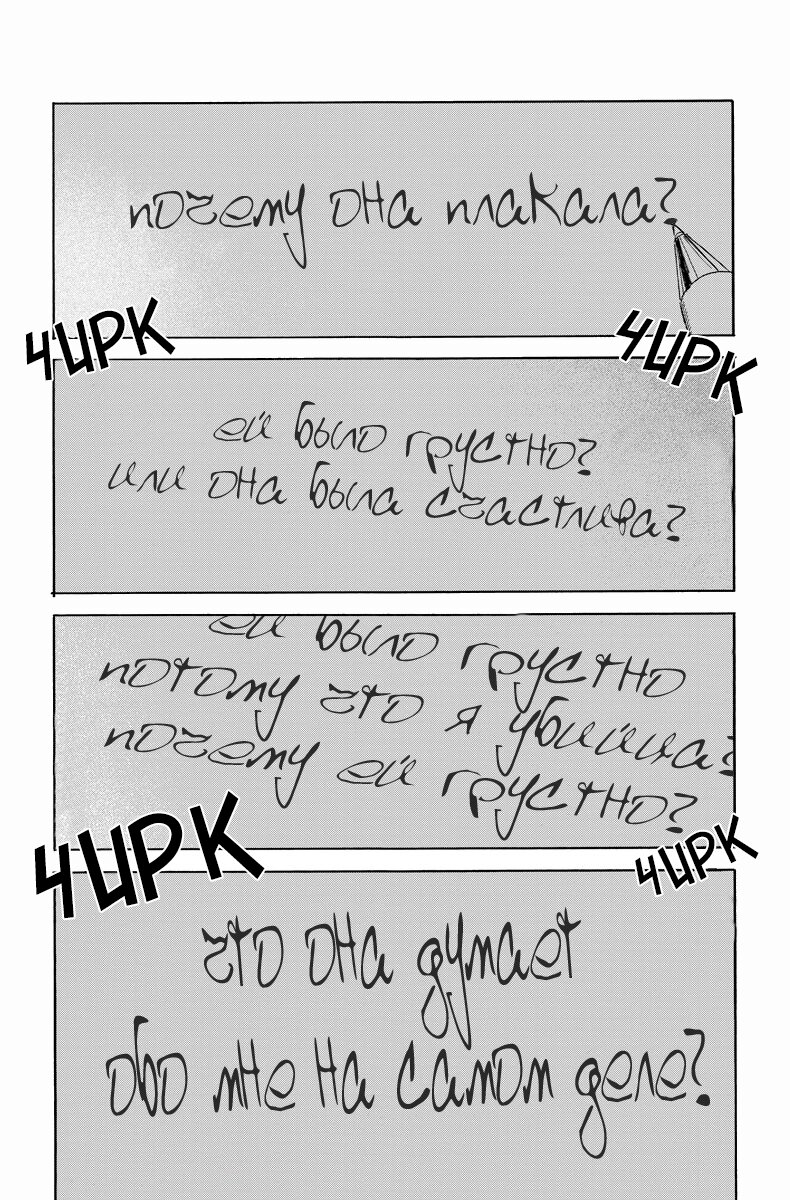 почему она плакала?
ЧИРК
ЧИРК
ей было грустно?
или она была счастлива?
ей было грустно
потому что я убийца?
почему ей грустно?
ЧИРК
ЧИРК
что она думает
обо мне на самом деле?